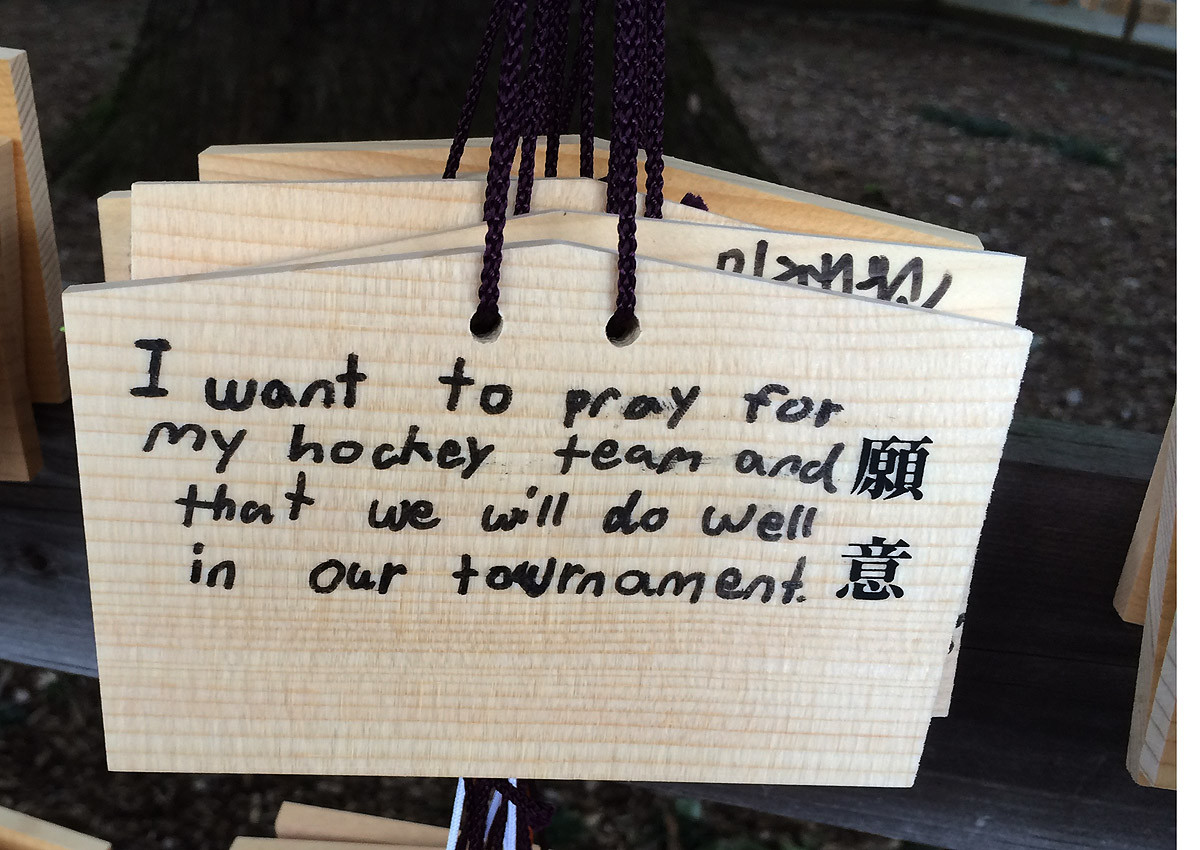 I want to pray for
my hockey team and
that we will do well
in our tournament.
願意